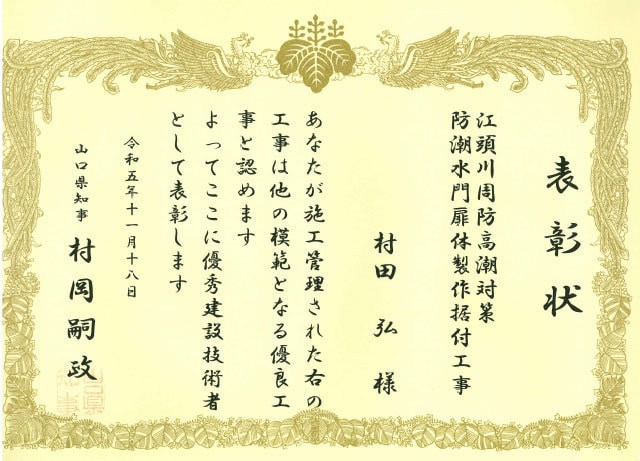 表彰状
江頭川周防高潮対策
防潮水門扉体製作据付工事
村田 弘 様
あなたが施工管理された右の
工事は他の模範となる優良工
事と認めます
よってここに優秀建設技術者
として表彰します
令和五年十一月十八日
山口県知事 村岡嗣政